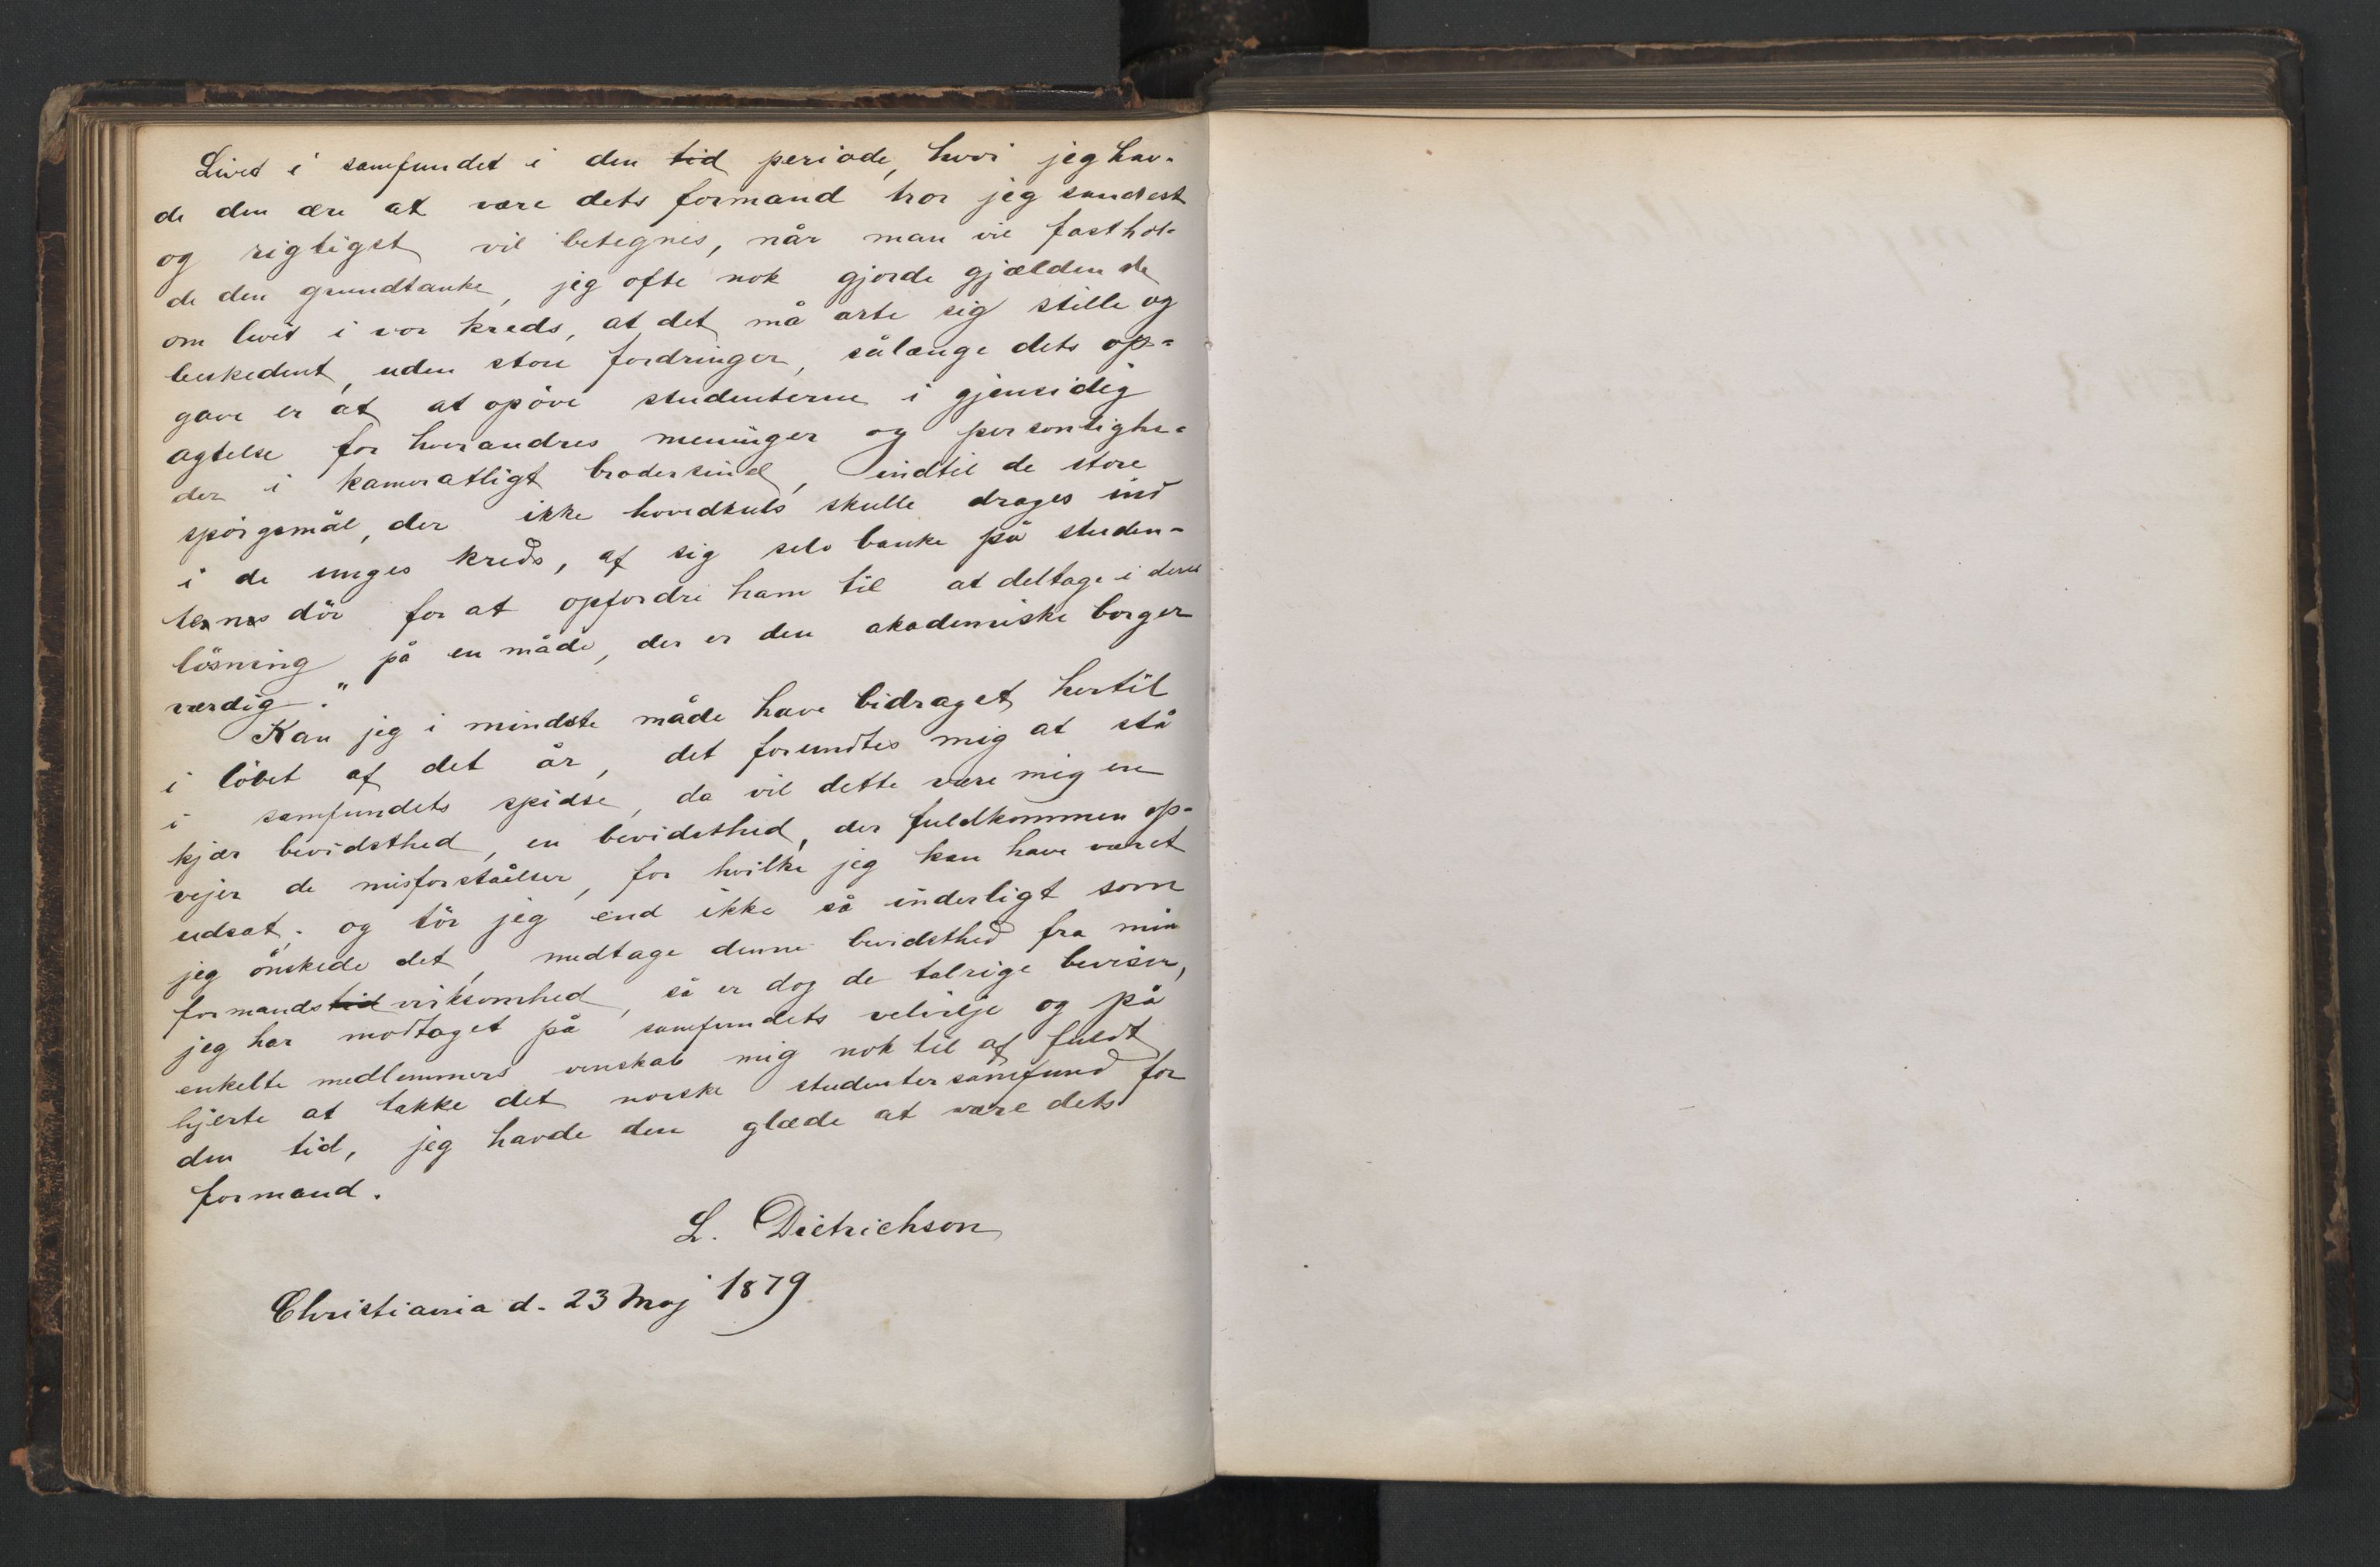 Livet i samfundet i den tid periode, hvori jeg hav-
de den ære at være dets formand tror jeg sandest
og rigtigst vil betegnes, når man vil fasthol-
de den grundtanke, jeg ofte nok gjorde gjældende
om livet i vor kreds, at det må arte sig stille og
beskedent, uden store fordringer, sålænge dets op-
gave er at at opöve studenterne i gjensidig
agtelse for hverandres meninger og personlighe-
der i kameratligt brodersind, indtil de store
spörgsmål, der ikke hovedkuls skulle drages ind
i de unges kreds, af sig selv banke på studen-
tens dör for at opfordre ham til at deltage i deres
lösning på en måde, der er den akademiske borger
værdig."
Kan jeg i mindste måde have bidraget hertil
i löbet af det år, det forundtes mig at stå
i samfundets spidse, da vil dette være mig en
kjær bevidsthed, en bevidsthed, der fuldkommen op-
vejer de misforståelser, for hvilke jeg kan have været
udsat; og tör jeg end ikke så inderligt som
jeg önskede det, medtage denne bevidsthed fra min
formandstid virksomhed, så er dog de talrige beviser,
jeg har modtaget på samfundets velvilje og på
enkelte medlemmers venskab mig nok til af fuldt
hjerte at takke det norske studentersamfund for
den tid, jeg havde den glæde at være dets
formand.
L. Dietrichson
Christiania d. 23 Maj 1879